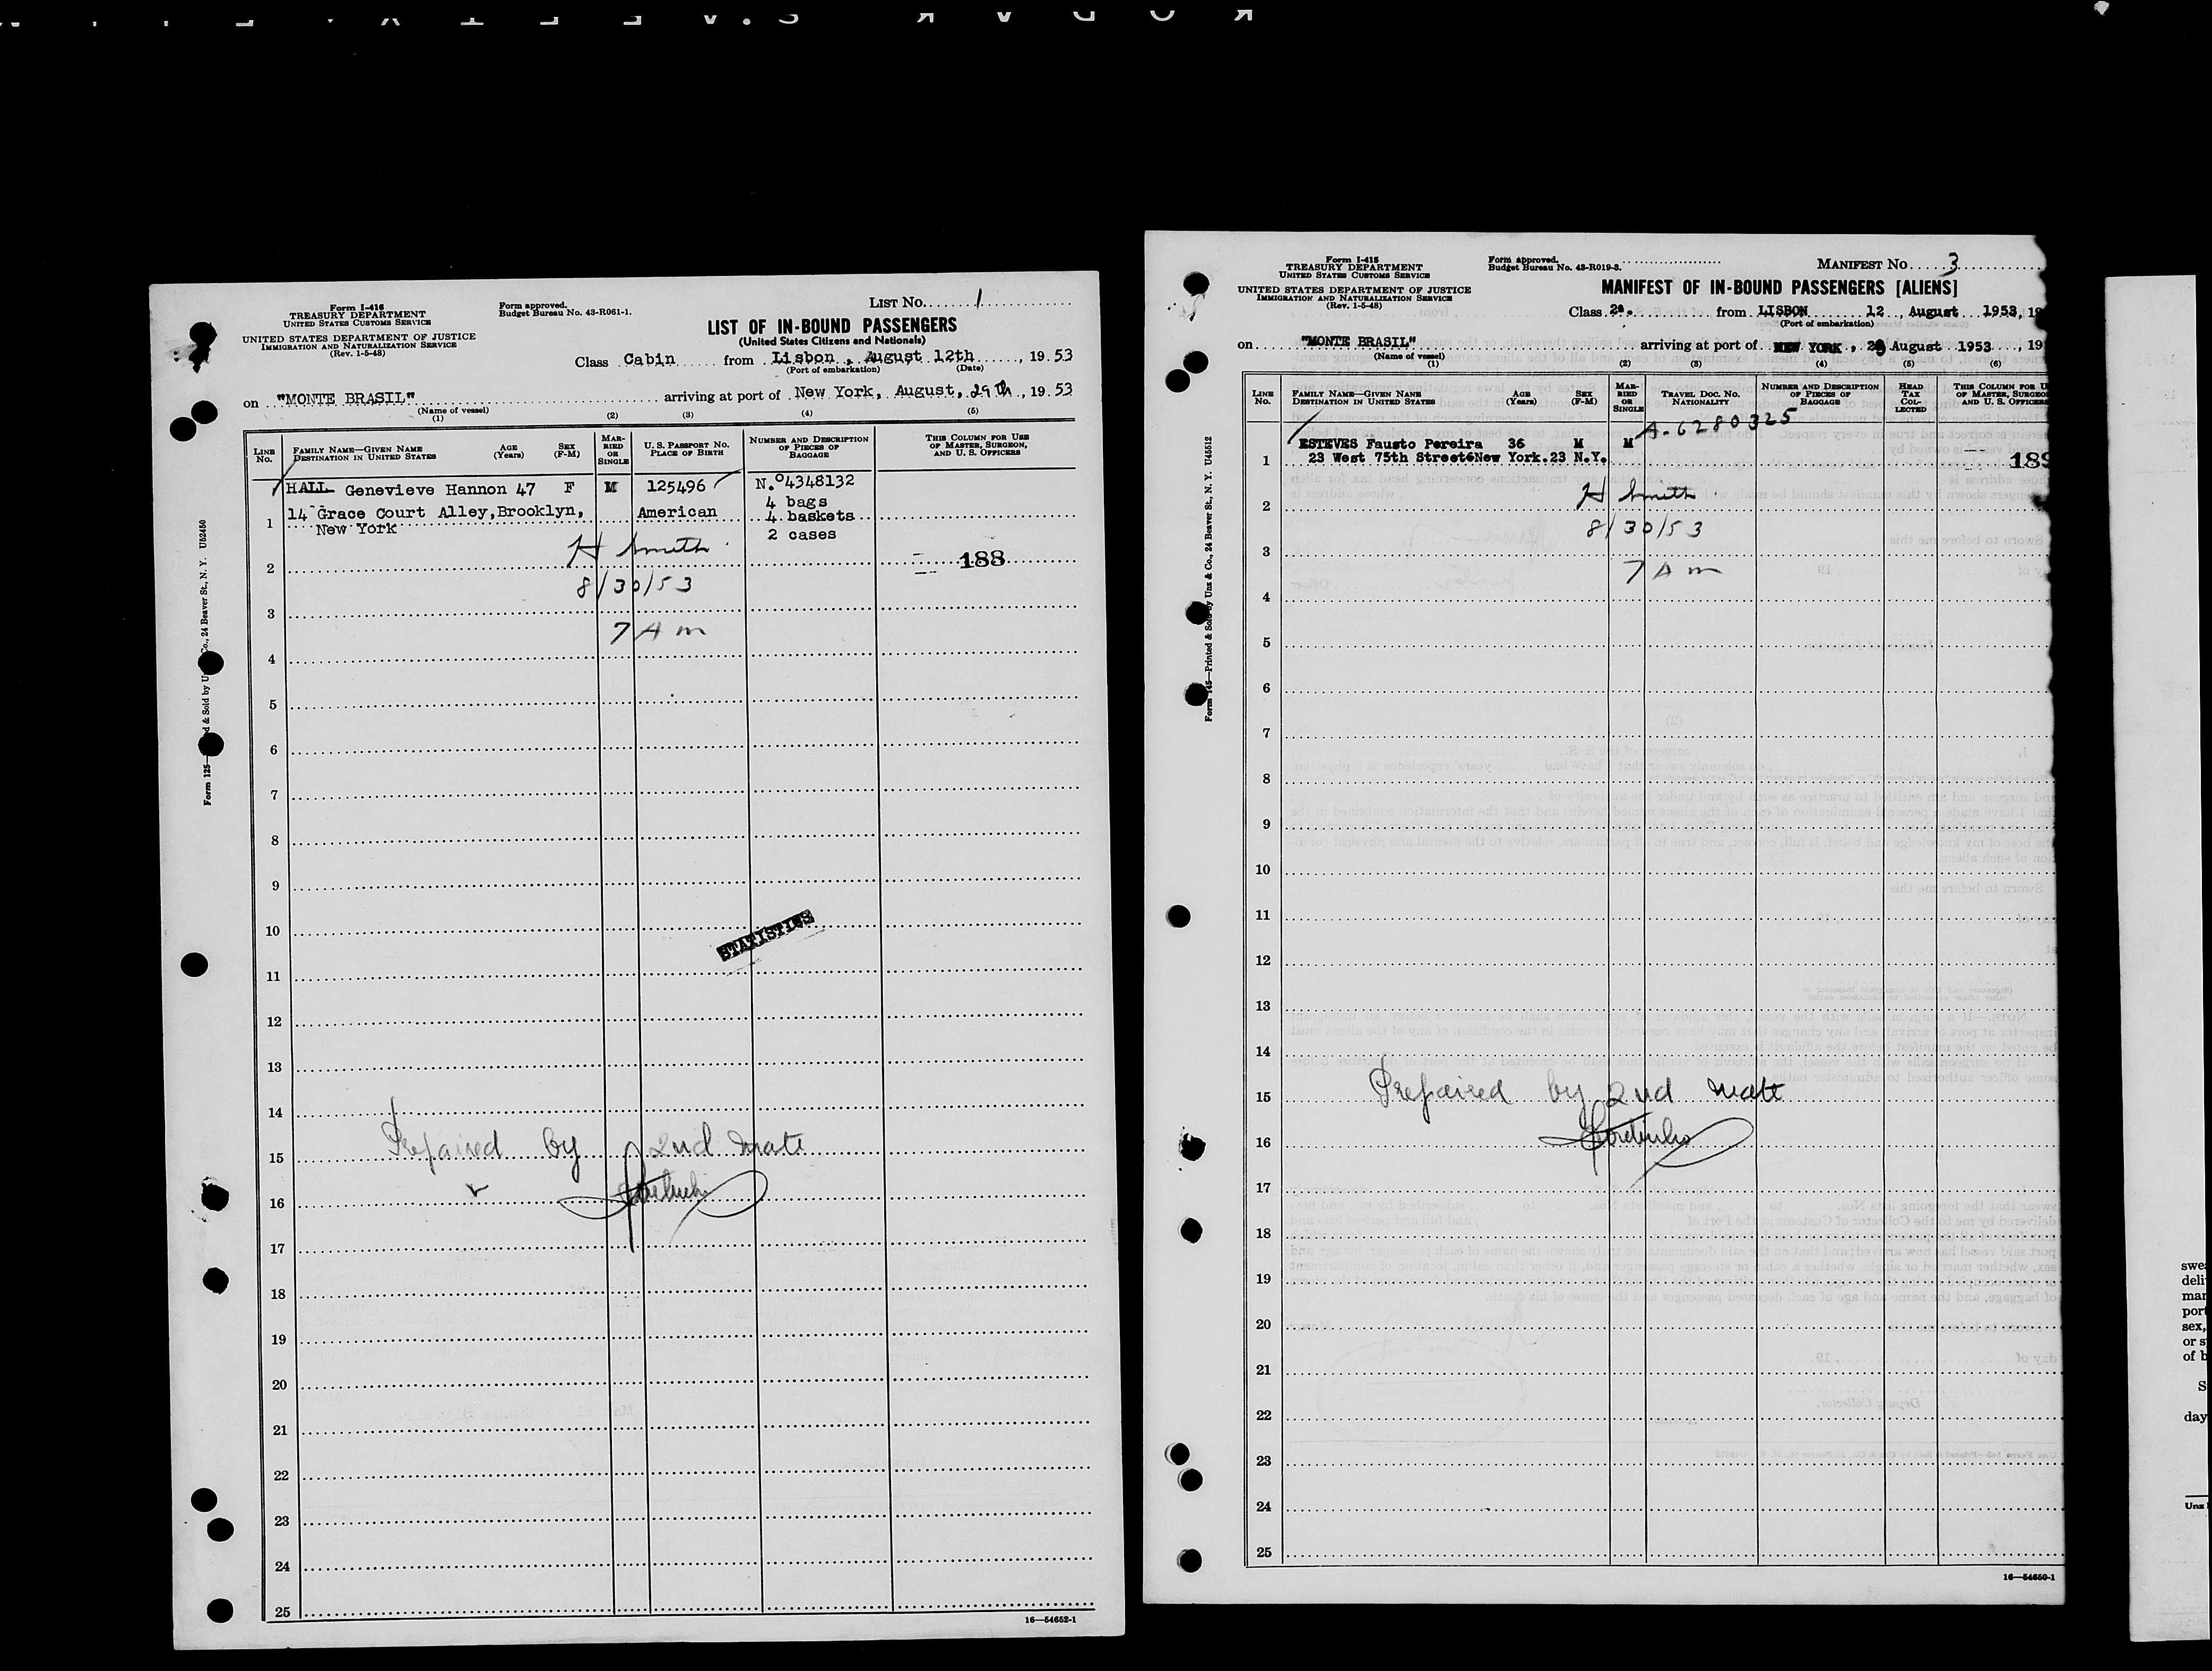 Form I-416
TREASURY DEPARTMENT
UNITED STATES CUSTOMS SERVICE
UNITED STATES DEPARTMENT OF JUSTICE
IMMIGRATION AND NATURALIZATION SERVICE
(Rev. 1-5-48)
Form approved.
Budget Bureau No. 43-R061-1.
LIST NO. 1
LIST OF IN-BOUND PASSENGERS
(United States Citizens and Nationals)
Class Cabin from Lisbon, August 12th, 19 53
(Port of embarkation) (Date)
on "MONTE BRASIL" arriving at port of New York, August, 29th, 19 53
(Name of vessel)
(1) (2) (3) (4) (5)
LINE NO. FAMILY NAME—GIVEN NAME DESTINATION IN UNITED STATES AGE (Years) SEX (F-M) MARRIED OR SINGLE U. S. PASSPORT NO. PLACE OF BIRTH NUMBER AND DESCRIPTION OF PIECES OF BAGGAGE THIS COLUMN FOR USE OF MASTER, SURGEON, AND U. S. OFFICERS
HALL Genevieve Hannon 47 F M 125496 N.º4348132
14 Grace Court Alley,Brooklyn, American 4 bags
1 New York 4 baskets
2 cases
H Smith
2 188
8/30/53
3
7 A m
4
5
6
7
8
9
10
STATISTICS
11
12
13
14
Prepaired by 2nd mate
15
16
17
18
19
20
21
22
23
24
25
16—54652-1
Co., 24 Beaver St., N. Y. U52450
Form 125
& Sold by
Form I-415
TREASURY DEPARTMENT
UNITED STATES CUSTOMS SERVICE
UNITED STATES DEPARTMENT OF JUSTICE
IMMIGRATION AND NATURALIZATION SERVICE
(Rev. 1-5-48)
Form approved.
Budget Bureau No. 43-R019-3.
MANIFEST NO. 3
MANIFEST OF IN-BOUND PASSENGERS [ALIENS]
Class 2a. from LISBON 12, August 1953, 19
(Port of embarkation)
on "MONTE BRASIL" arriving at port of NEW YORK, 29 August 1953, 19
(Name of vessel)
(1) (2) (3) (4) (5) (6)
LINE NO. FAMILY NAME—GIVEN NAME DESTINATION IN UNITED STATES AGE (Years) SEX (F-M) MARRIED OR SINGLE TRAVEL DOC. NO. NATIONALITY NUMBER AND DESCRIPTION OF PIECES OF BAGGAGE HEAD TAX COLLECTED THIS COLUMN FOR U OF MASTER, SURGEO AND U. S. OFFICERS
A-6280325
ESTEVES Fausto Pereira 36 M M
1 23 West 75th Street6New York.23 N.Y. 189
H Smith
2
8/30/53
3
7 A m
4
5
6
7
8
9
10
11
12
13
14
15 Prepaired by 2nd mate
16
17
18
19
20
21
22
23
24
25
16—54650-1
Form 145—Printed & Sold by Unz & Co., 24 Beaver St., N. Y. U45512
swea
deli
man
port
sex,
or s
of b
S
day
Unz